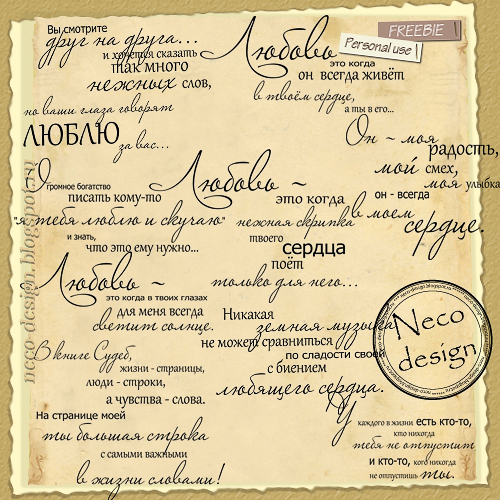 Вы смотрите
друг на друга...
и хочется сказать
так много
нежных слов,
но ваши глаза говорят
ЛЮБЛЮ
за вас...
Любовь
это когда
он всегда живёт
в твоём сердце,
а ты в его...
FREEBIE
Personal use
Он ~ моя
радость,
мой смех,
моя улыбка
он - всегда
в моем
сердце.
Огромное богатство
писать кому-то
"я тебя люблю и скучаю"
и знать,
что это ему нужно...
Любовь ~
это когда
нежная скрипка
твоего
сердца
поёт
только для него...
Любовь ~
это когда в твоих глазах
для меня всегда
светит солнце.
Никакая
земная музыка
не может сравниться
по сладости своей
с биением
любящего сердца.
В книге Судеб,
жизни - страницы,
люди - строки,
а чувства - слова.
На странице моей
ты большая строка
с самыми важными
в жизни словами!
У
каждого в жизни есть кто-то,
кто никогда
тебя не отпустит
и кто-то, кого никогда
не отпустишь ты.
Neco
design
neco-design.blogspot.ru